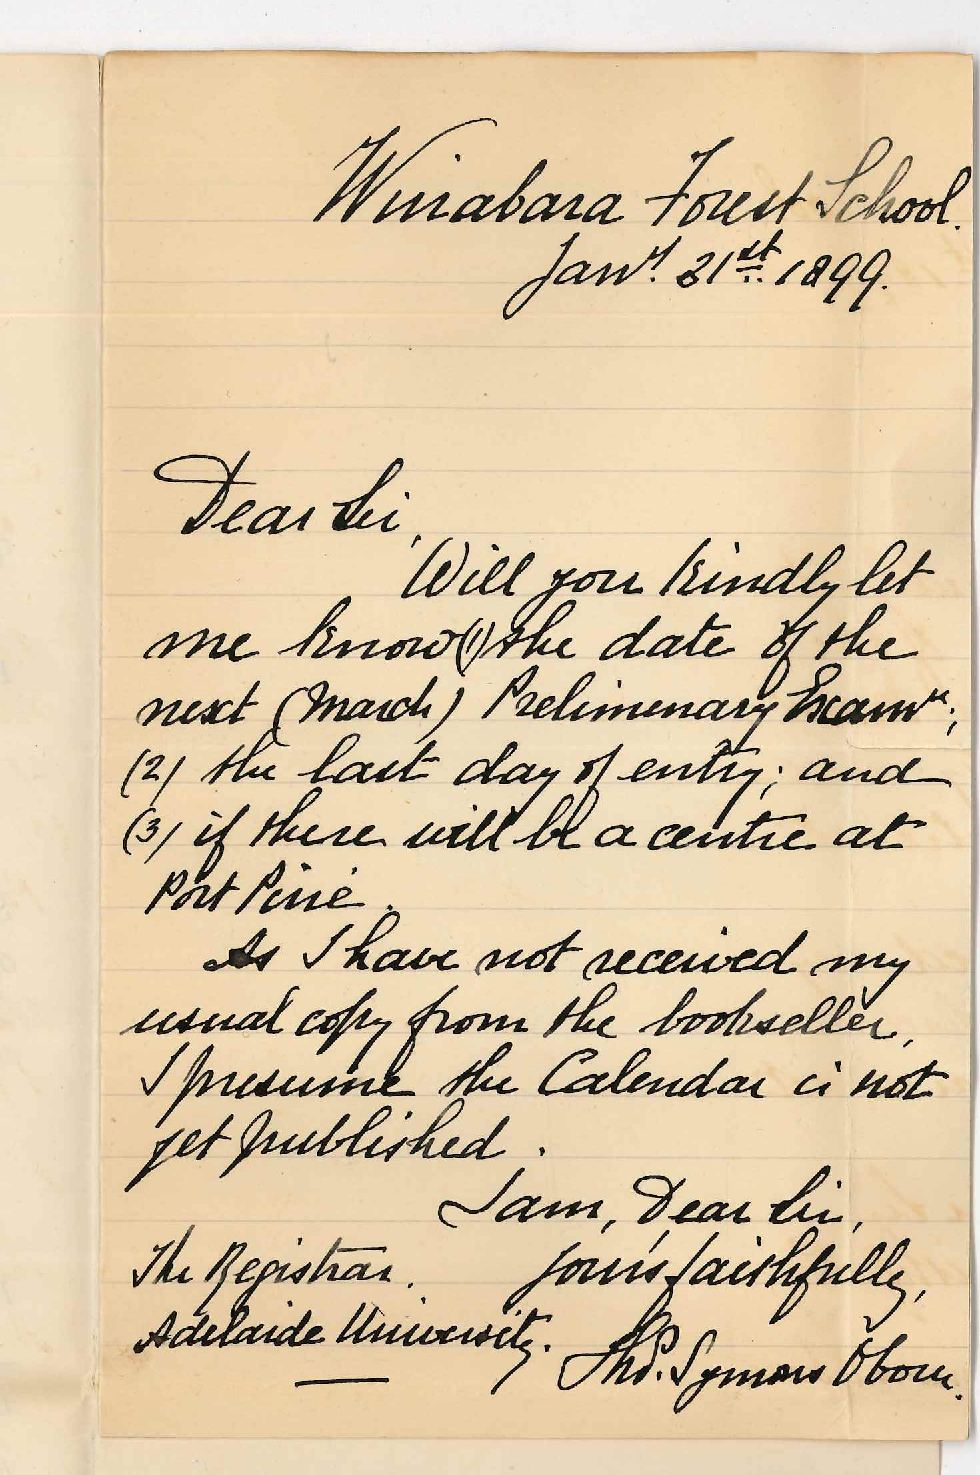 Wirrabara Forest School.
Jany. 31st. 1899.
Dear Sir,
Will you kindly let
me know (1) the date of the
next (March) Preliminary Examn.;
(2) the last day of entry; and
(3) if there will be a centre at
Port Pirie.
As I have not received my
usual copy from the bookseller,
I presume the Calendar is not
yet published.
I am, Dear Sir,
Yours faithfully,
Thos. Symons Oborn.
The Registrar.
Adelaide University.